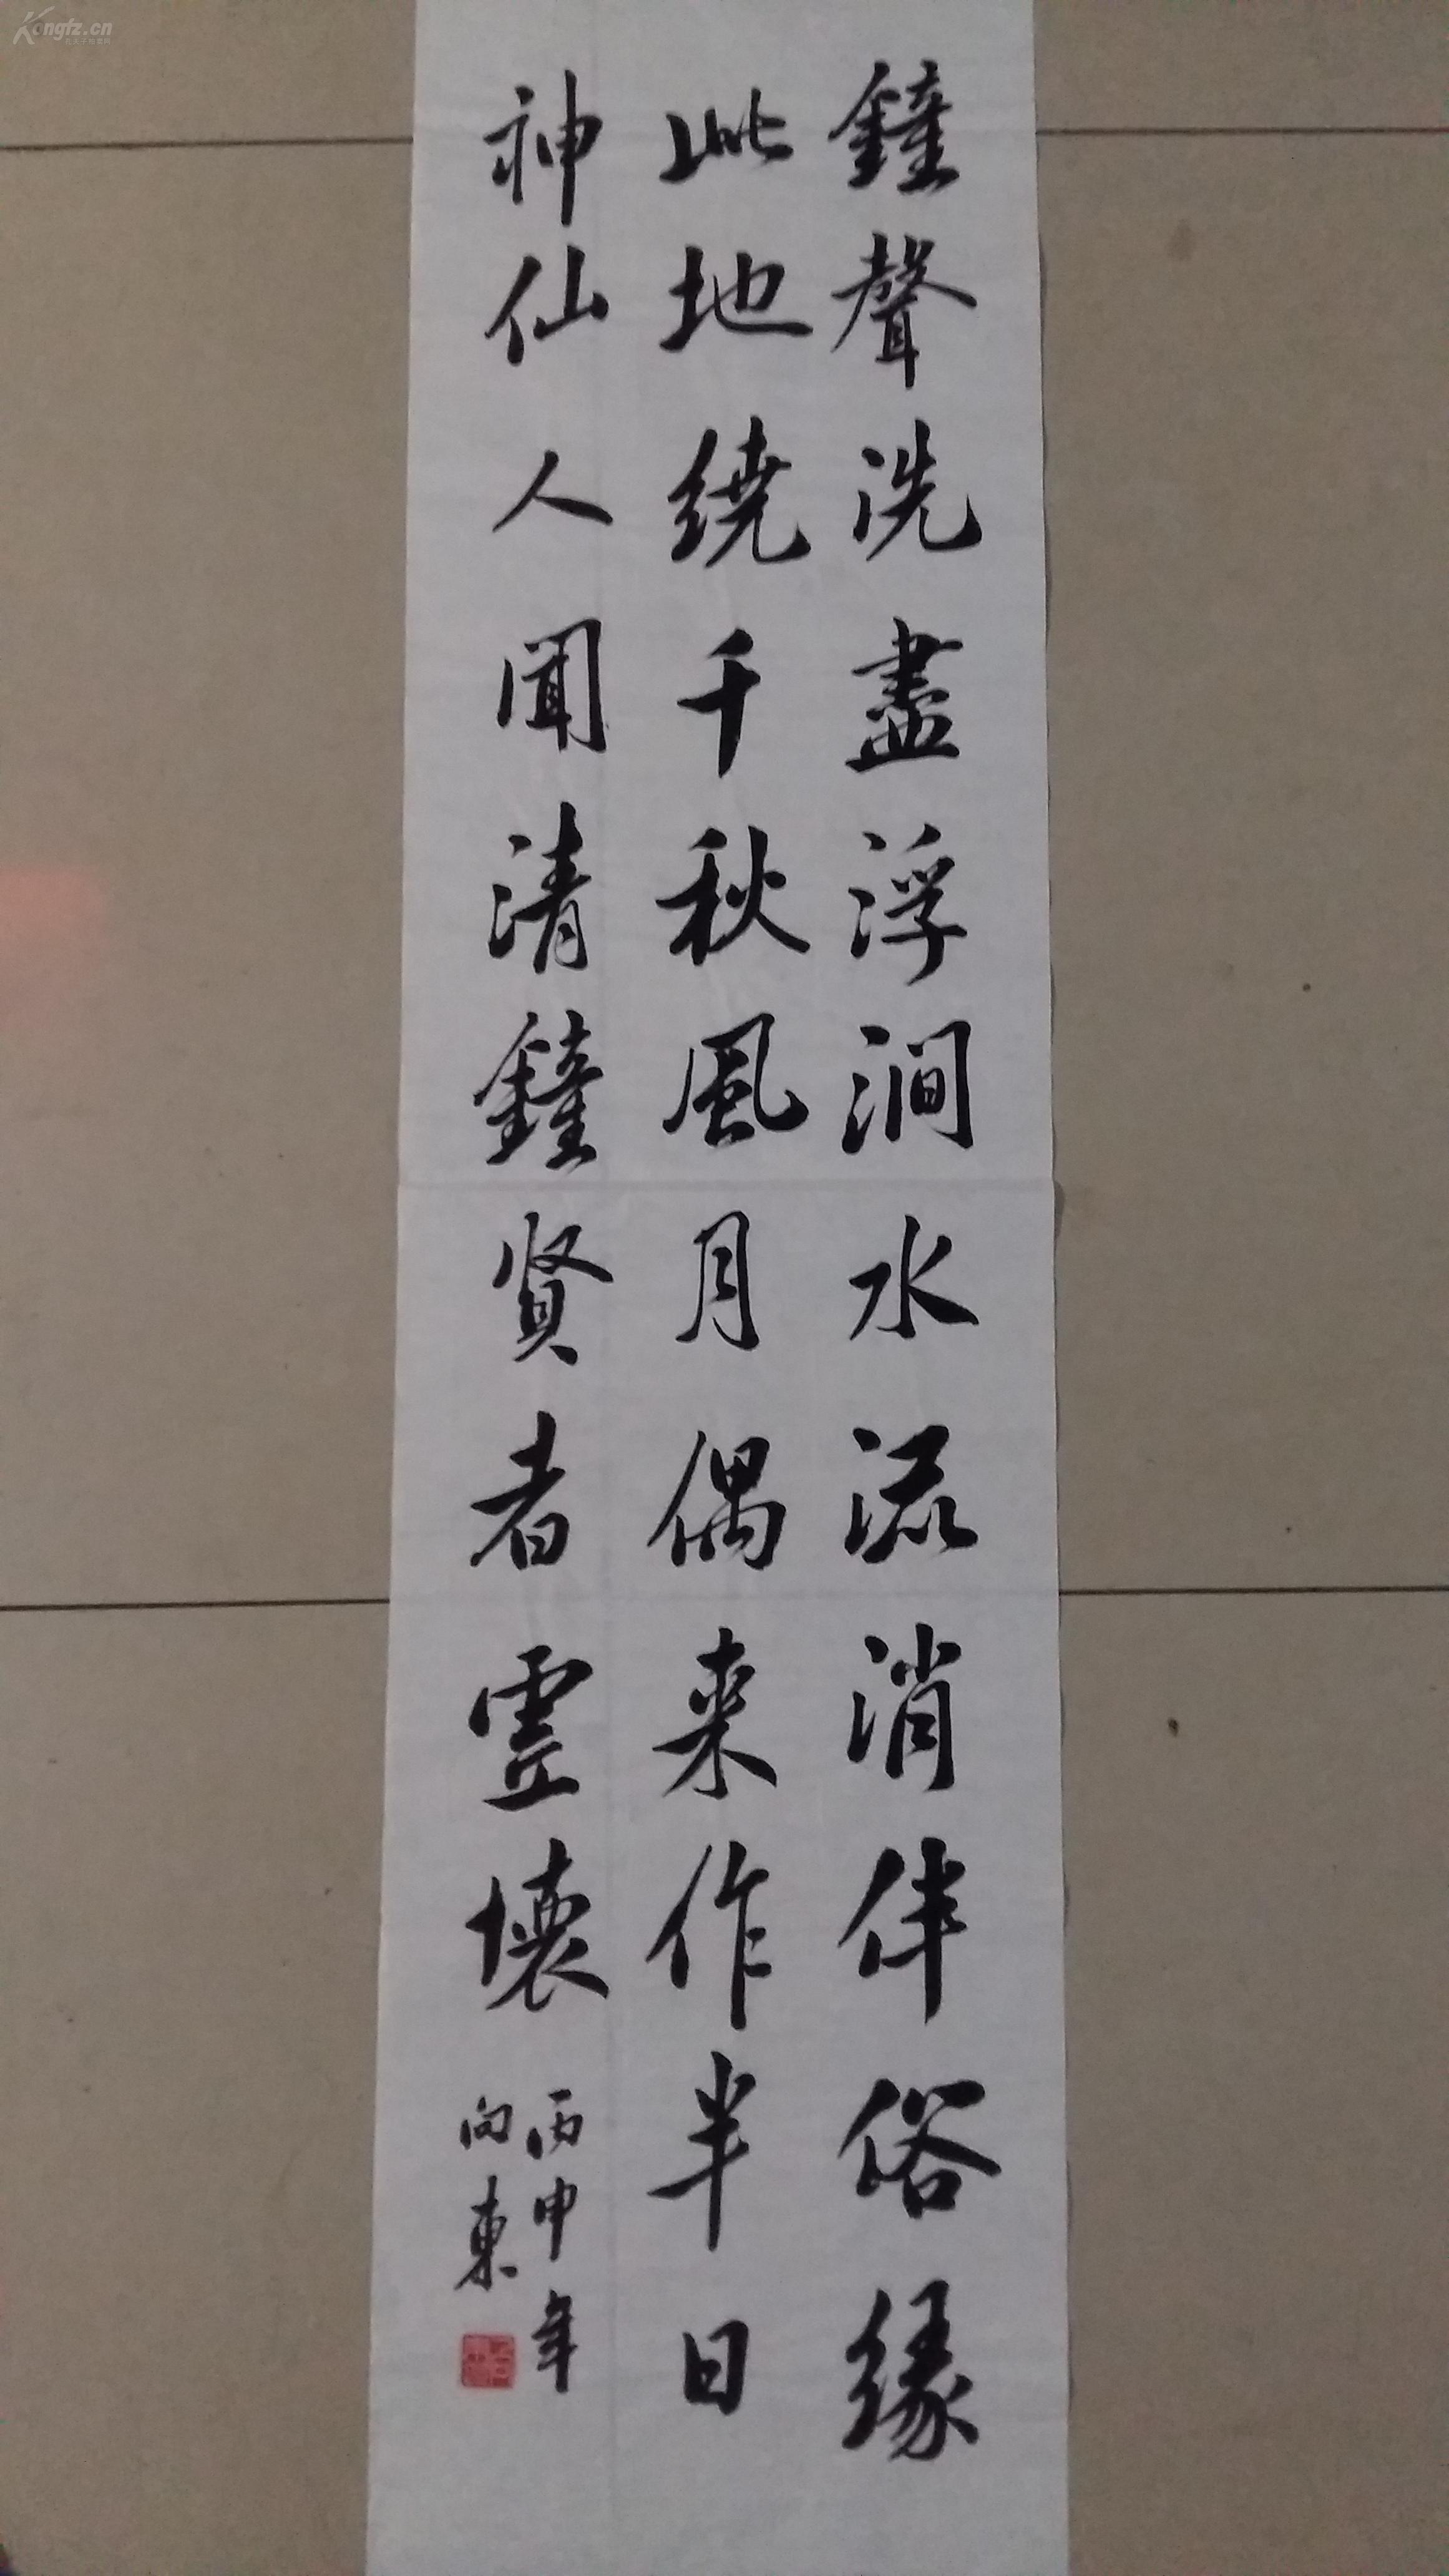 鐘聲洗盡浮澗水流消伴俗緣
此地繞千秋風月偶来作半日
神仙人聞清鐘贤者靈壞
丙申年
向東
Kongfz.cn